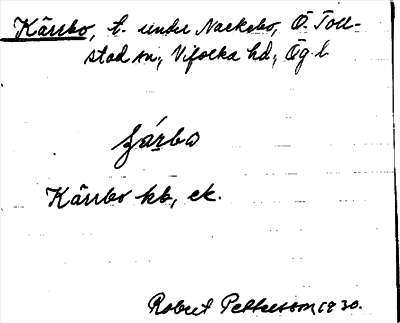 Kärrbo, t. under Nackebo, Ö. Toll-
stad sn., Vifolka hd, Ög. l.
Kärrbo kb, ek.
Robert Pettersson 1930.